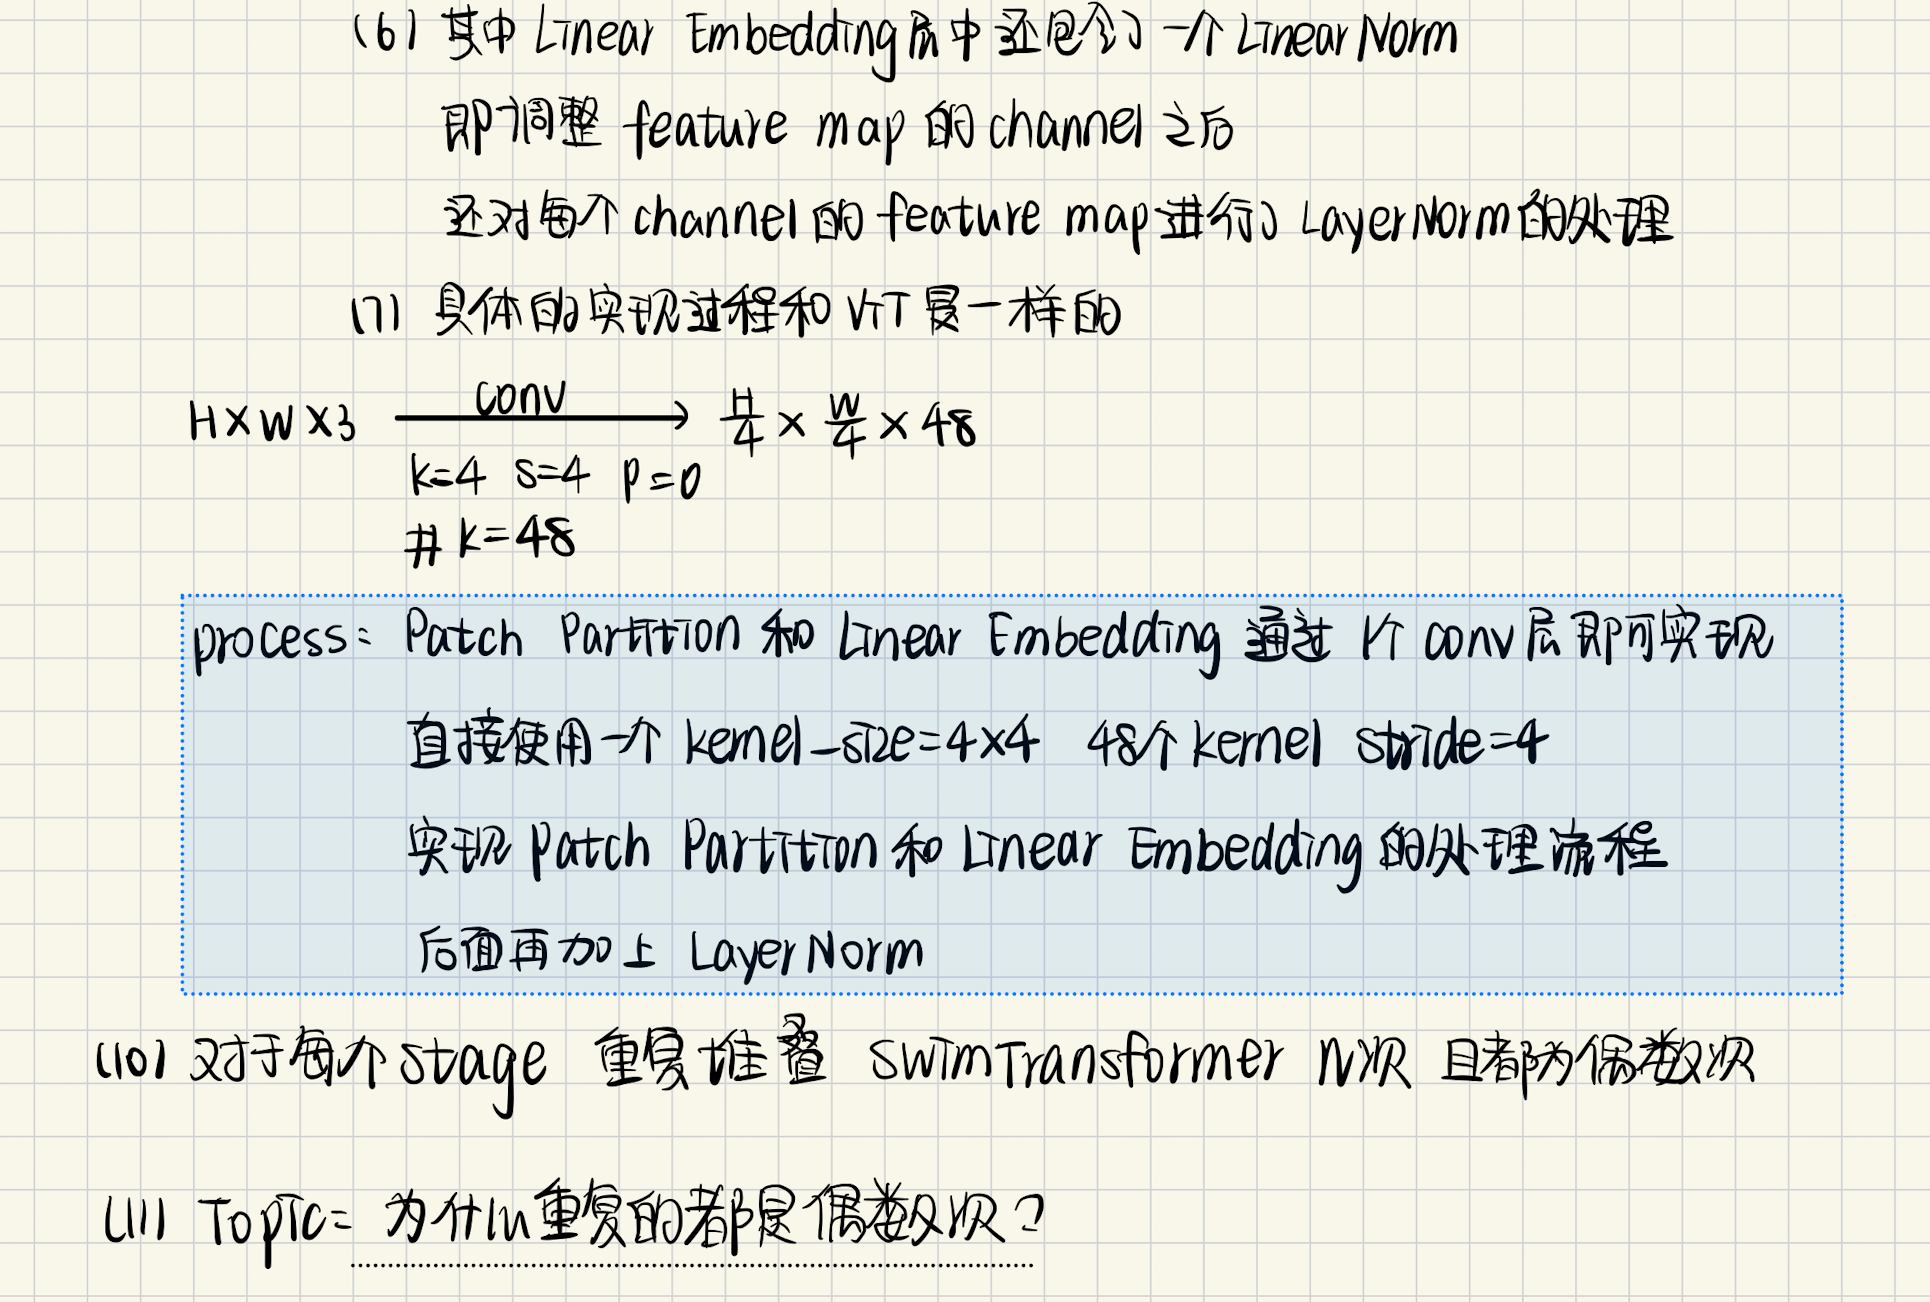 (6) 其中 Linear Embedding层中还包含了一个 LinearNorm
即调整 feature map 的 channel 之后
还对每个 channel 的 feature map 进行了 LayerNorm 的处理
(7) 具体的实现过程和 ViT 是一样的
H×W×3 conv H/4 × W/4 × 48
k=4 s=4 p=0
# k=48
process: Patch Partition 和 Linear Embedding 通过 1个 conv层 即可实现
直接使用一个 kernel_size=4×4 48个kernel stride=4
实现 Patch Partition 和 Linear Embedding 的处理流程
后面再加上 LayerNorm
(10) 对于每个 stage 重复堆叠 SwimTransformer N次 且都为偶数次
(11) Topic: 为什么重复的都是偶数次?